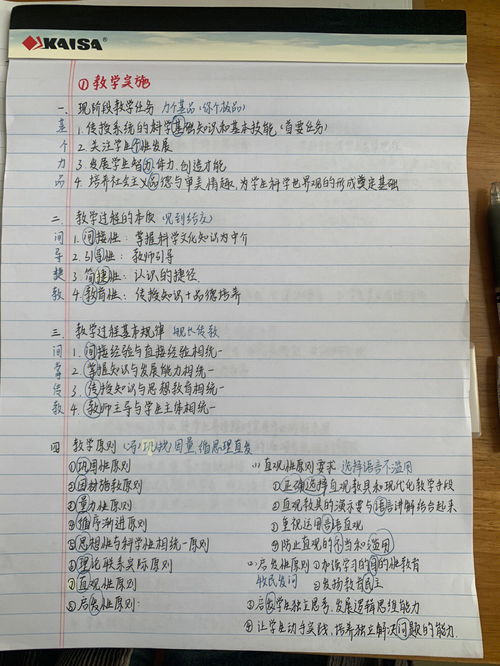 KAISA
①教学实施
一、现阶段教学任务
基 1.传授系统的科学基础知识和基本技能(首要任务)
个 2.关注学生个性发展
力 3.发展学生智力、体力、创造才能
品 4.培养社会主义品德与审美情趣,为学生科学世界观的形成奠定基础
二、教学过程的本质
间 1.间接性:掌握科学文化知识为中介
导 2.引导性:教师引导
捷 3.简捷性:认识的捷径
教 4.教育性:传授知识+品德培养
三、教学过程基本规律
间 1.间接经验与直接经验相统一
掌 2.掌握知识与发展能力相统一
传 3.传授知识与思想教育相统一
教 4.教师主导与学生主体相统一
四 教学原则 巩 因量循思理直发
①巩固性原则
②因材施教原则
③量力性原则
④循序渐进原则
⑤思想性与科学性相统一原则
⑥理论联系实际原则
⑦直观性原则
⑧启发性原则
(1)直观性原则要求 选择语言不滥用
①正确选择直观教具和现代化教学手段
②直观教具的演示要与语言讲解结合起来
③重视运用言语直观
④防止直观的不当和滥用
启发性原则 ①加强学习的目的性教育
②发扬教育民主
③启发学生独立思考,发展逻辑思维能力
④让学生动手实践,培养独立解决问题的能力.